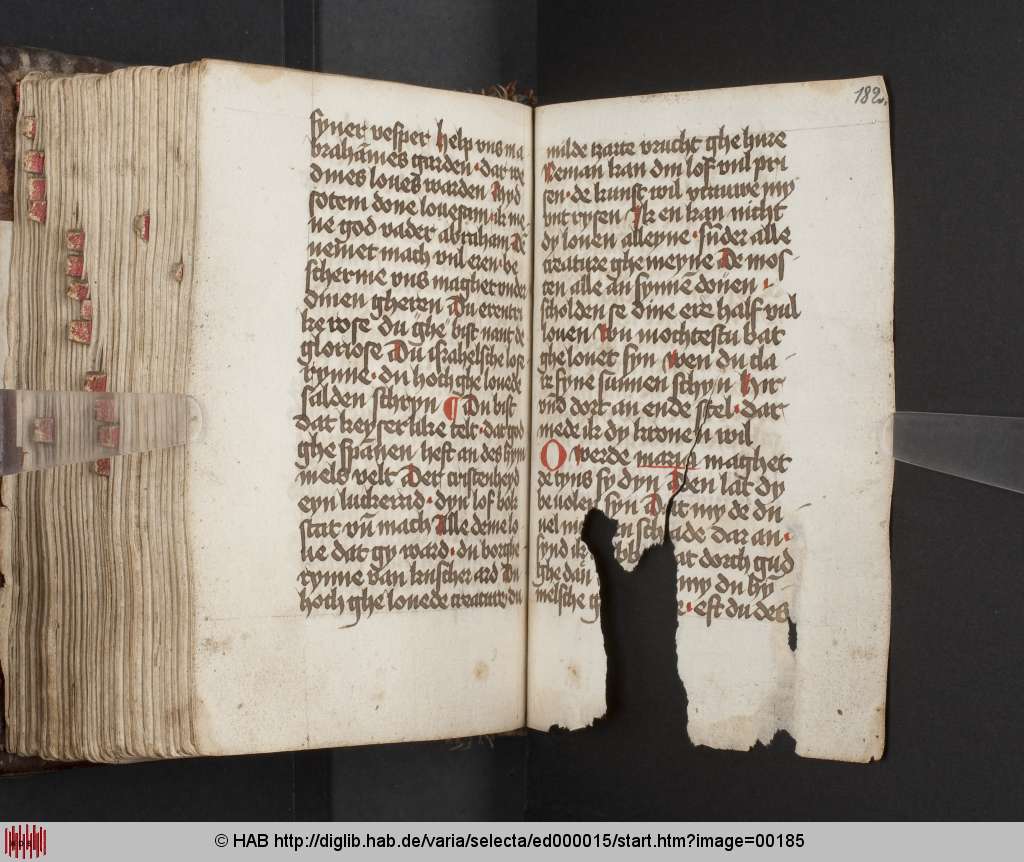 syner vesper help vns in a
brahames garden · dat we
dines loues warden Myd
sotem done louesam · ik ne
ne god vader abraham De
nemet mach vul eren · be
scherme vns maghet vnder
dinen gheren Du erentri
ke rose du ghe bist nant de
gloriose Du israhelsche lor
rynne · du hoch ghe louede
salden schryn ¶ Du bist
dat keyserlike telt · dat god
ghe spānen heft an des hym
mels velt Det cristenheyd
eyn luckerrad · dyn lof bok
stat vn̄ mach Alle deme lo
ue dat gy ward · du borghe
rynne van kuscher ard Du
hoch ghe louede creature · du
182
milde tzarte vrucht ghe hure
Neman kan din lof vul pri
sen · de kunst wil vrauwe my
vnt rysen Ik en kan nicht
dy louen alleyne · sūder alle
creature ghe meyne De mos
ten alle an synnē donen ·
scholden se dine ere half vul
louen Wu mochtestu bat
ghe louet syn wen du cla
tz syne sunnen schyn Hir
vn̄d dort an ende stel · dat
mede ik dy kronen wil
O werde maria maghet
de tyns sy dyn Den lat dy
beuolen syn Dat my de du
uel schade dar an ·
synd ik at dorch gud
ghe dan my du hy
melsche · est du des
© HAB http://diglib.hab.de/varia/selecta/ed000015/start.htm?image=00185